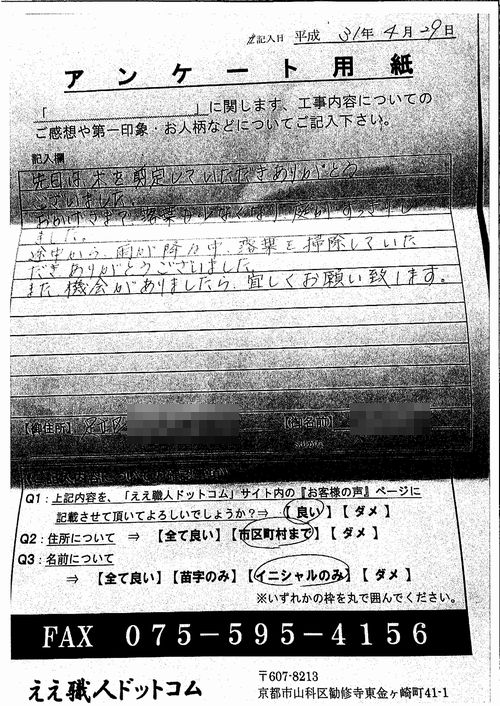 記入日 平成 31年 4月 29日
アンケート用紙
「 」に関します、工事内容についての
ご感想や第一印象・お人柄などについてご記入下さい。
記入欄
先日は木を剪定していただきありがとう
ございました。
おかげさまで、落葉も少なくなり、庭がすっきりし
ました。
途中から、雨が降る中、落葉を掃除していた
だきありがとうございました。
また、機会がありましたら、宜しくお願い致します。
【御住所】
【御名前】
Q1：上記内容を、「ええ職人ドットコム」サイト内の『お客様の声』ページに
記載させて頂いてよろしいでしょうか？⇒ 【 良い 】【 ダメ 】
Q2：住所について ⇒ 【全て良い】【市区町村まで】【 ダメ 】
Q3：名前について
⇒ 【全て良い】【苗字のみ】【イニシャルのみ】【 ダメ 】
※いずれかの枠を丸で囲んでください。
FAX 075-595-4156
ええ職人ドットコム
〒607-8213
京都市山科区勧修寺東金ヶ崎町41-1